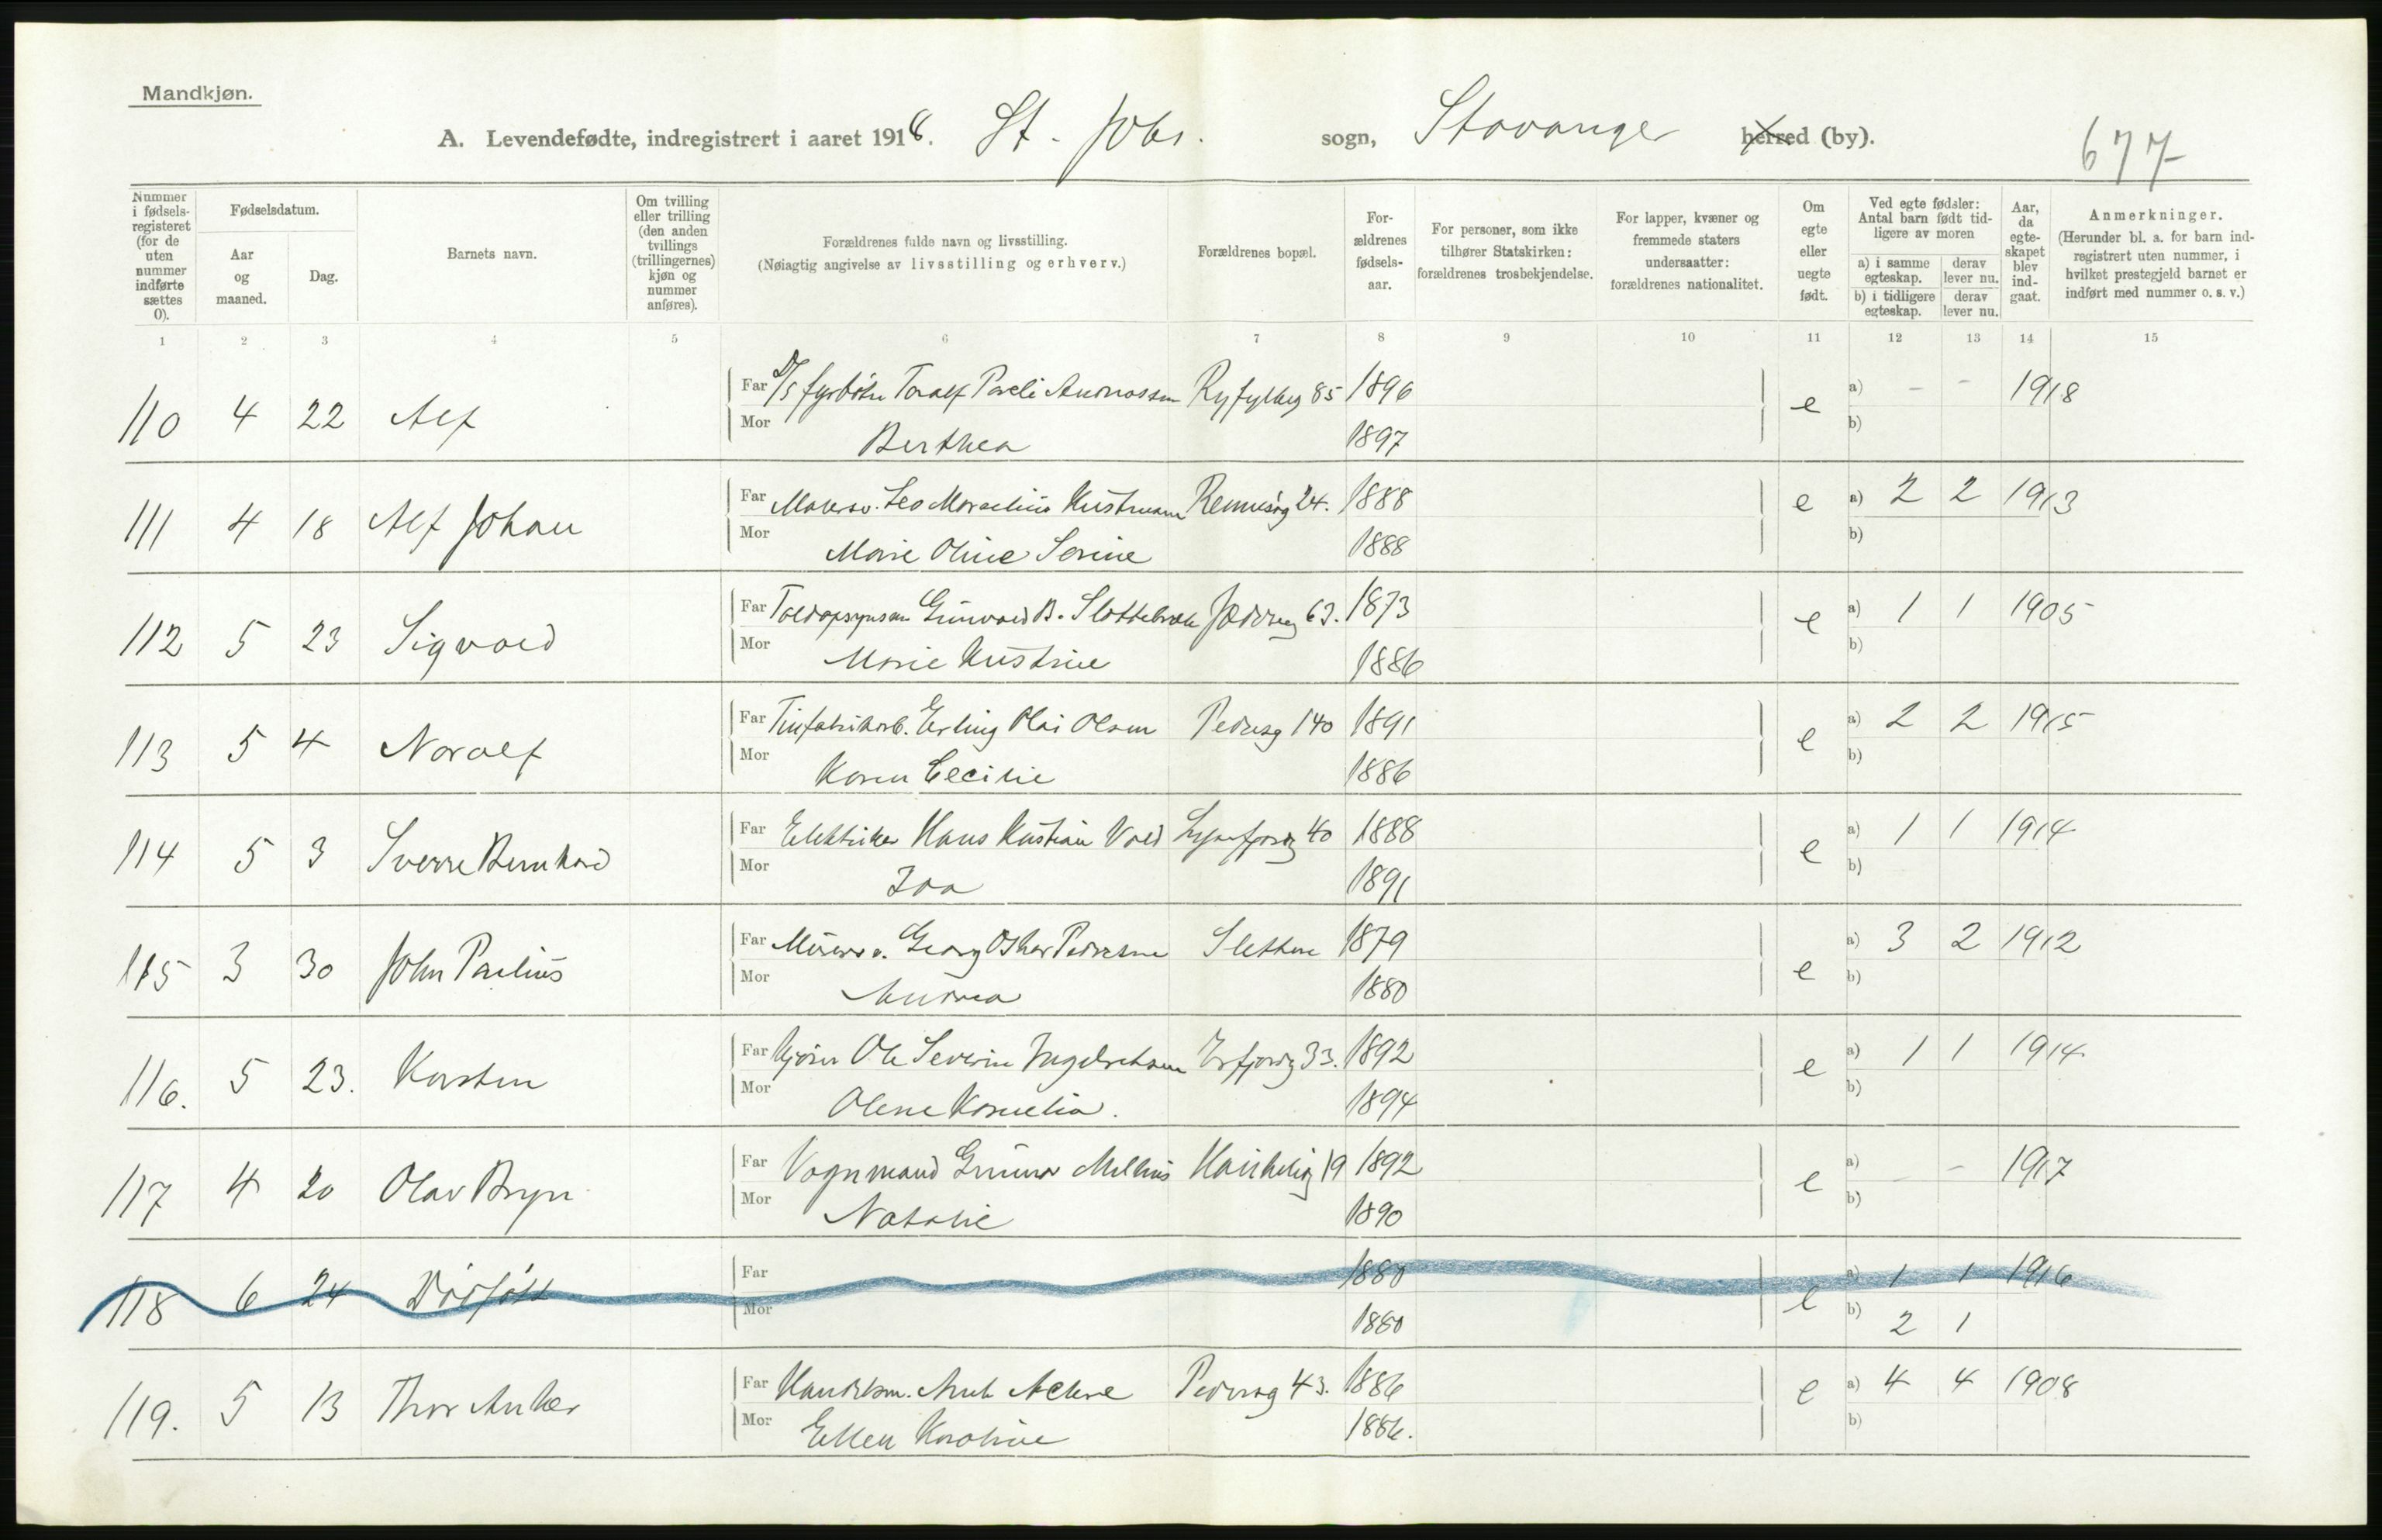 Mandkjøn.
A. Levendefødte, indregistrert i aaret 1918. St. Joh's. sogn, Stavanger herred (by). 677
Nummer i fødsels-registeret (for de uten nummer indførte sættes 0).
Fødselsdatum.
Aar og maaned.
Dag.
Barnets navn.
Om tvilling eller trilling (den anden tvillings (trillingernes) kjøn og nummer anføres).
Forældrenes fulde navn og livsstilling.
(Nøiagtig angivelse av livsstilling og erhverv.)
Forældrenes bopæl.
For-ældrenes fødsels-aar.
For personer, som ikke tilhører Statskirken: forældrenes trosbekjendelse.
For lapper, kvæner og fremmede staters undersaatter: forældrenes nationalitet.
Om egte eller uegte født.
Ved egte fødsler: Antal barn født tid-ligere av moren
a) i samme egteskap. derav lever nu.
b) i tidligere egteskap. derav lever nu.
Aar, da egte-skapet blev ind-gaat.
Anmerkninger.
(Herunder bl. a. for barn ind-registrert uten nummer, i hvilket prestegjeld barnet er indført med nummer o. s. v.)
1 2 3 4 5 6 7 8 9 10 11 12 13 14 15
110 4 22 Alf Far D/S fyrbøter Toralf Pareli Andreassen Ryfylkeg 85 1896 e a) - - 1918
Mor Berthea 1897 b)
111 4 18 Alf Johan Far Malersv. Leo Marselius Kristensen 24. 1888 e a) 2 2 1913
Mor Marie Oline Serine 1888 b)
112 5 23 Sigvald Far Toldopsynsm Gunvald B. Slettebræk Jæderveg 63. 1873 e a) 1 1 1905
Mor Marie Kristine 1886 b)
113 5 4 Noralf Far Tinfabrikarb. Erling Olai Olsen Pedersg 140 1891 e a) 2 2 1915
Mor Karen Cecilie 1886 b)
114 5 3 Sverre Bernhard Far Elektriker Hans Kristian Vold Lysefjordg 40 1888 e a) 1 1 1914
Mor Ida 1891 b)
115 3 30 John Paulius Far Murersv. Georg Oskar Pedersen Sletten 1879 e a) 3 2 1912
Mor Andrea 1880 b)
116. 5 23. Karsten Far Kjører Ole Severin Ingebretsen Erfjordg 33. 1892 e a) 1 1 1914
Mor Olene Kornelia. 1894 b)
117 4 20 Olav Bryn Far Vognmand Gunnar Melhus Haukelig 19 1892 e a) - - 1917
Mor Natalie 1890 b)
118 6 24 Dødfødt Far 1880 e a) 1 1 1916
Mor 1880 b) 2 1
119. 5 13 Thor Anker Far Handelsm. Ackre Pedersg 43. 1886 e a) 4 4 1908
Mor Ellen Karoline 1886. b)